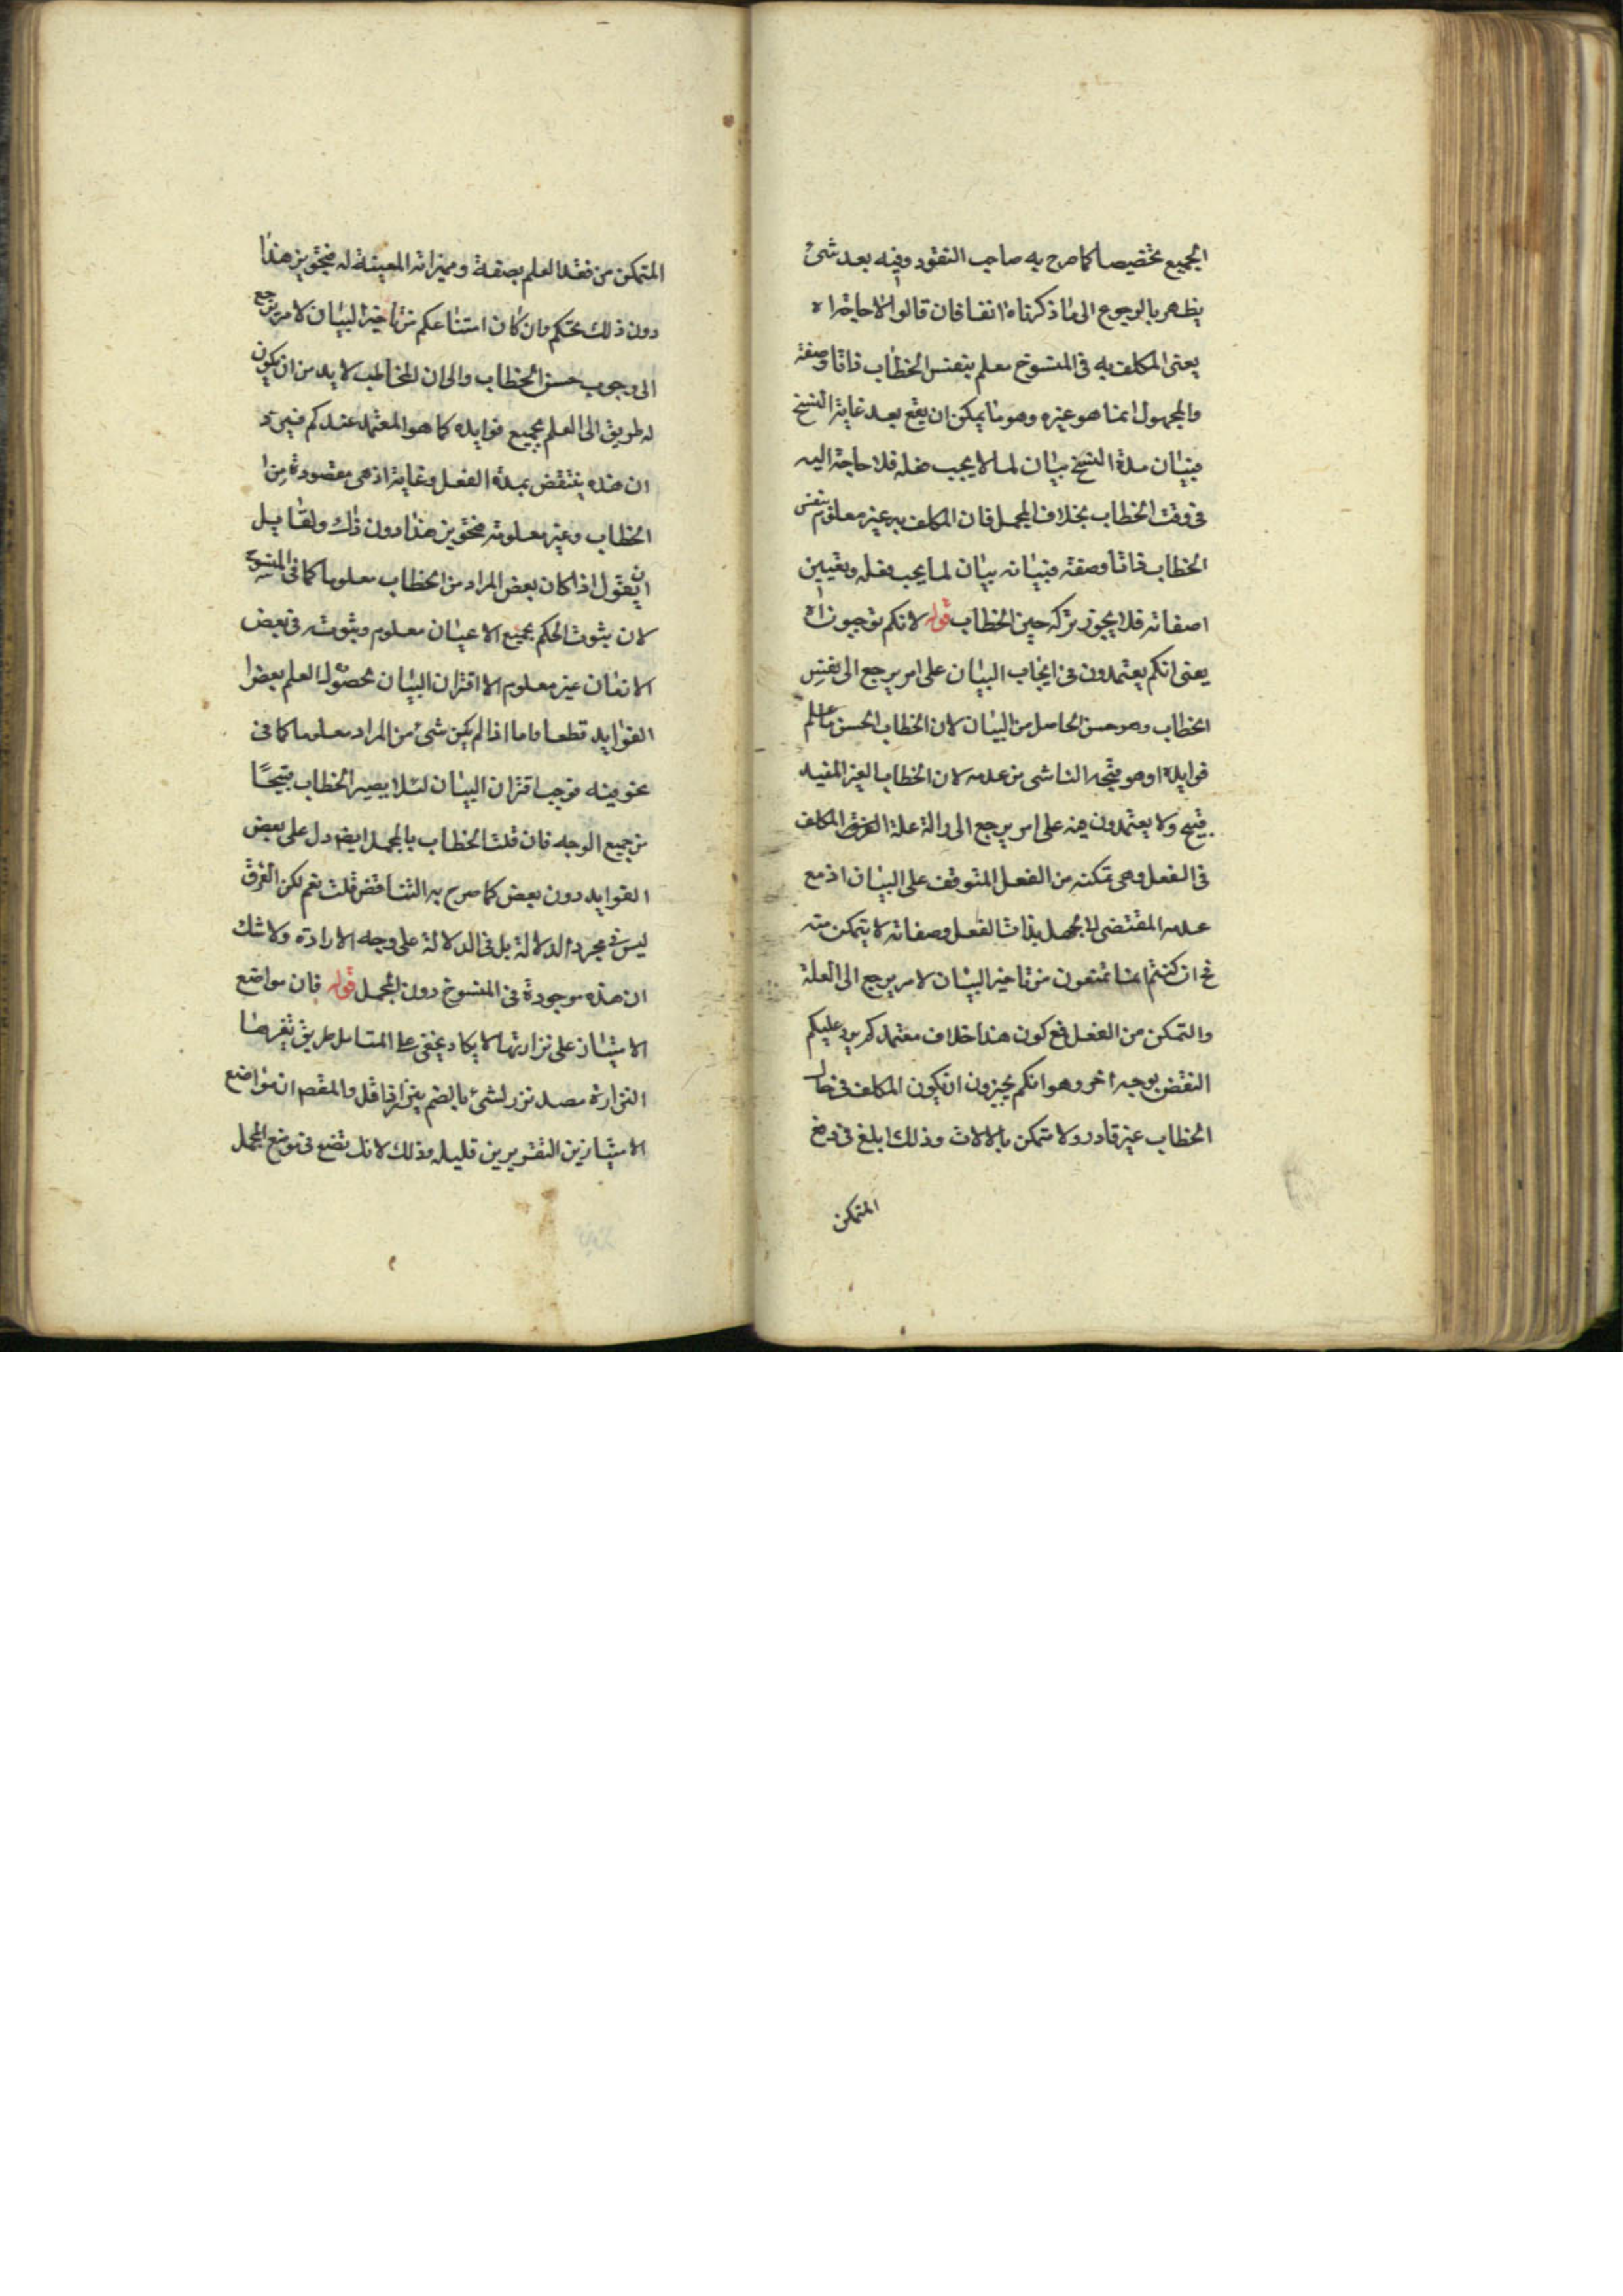 الجميع تخصيصا كما صرح به صاحب النقود وفيه بعد شئ
يظهر بالرجوع الى ما ذكرناه انفا فان قالوا لا حاجة اه
يعنى المكلف به فى المنسوخ معلم بنفس الخطاب ذاتا وصفة
والمجهول انما هو غيره وهو ما يمكن ان يقع بعد غاية النسخ
فبيان مدة النسخ بيان لما لا يجب فعله فلا حاجة اليه
فى وقت الخطاب بخلاف المجمل فان المكلف به غير معلوم بنفس
الخطاب ذاتا وصفة فبيانه بيان لما يجب فعله وتعيين
صفاته فلا يجوز تركه حين الخطاب قوله لانكم توجبون اه
يعنى انكم يعتمدون فى ايجاب البيان على امر يرجع الى نفس
الخطاب وهو حسن الحاصل من البيان لان الخطاب الحسن ما علم
فوايده او هو قبحه الناشى من عدمه لان الخطاب الغير المفيد
قبيح ولا يعتمدون فيه على امر يرجع الى ازالة علة المكلف
فى الفعل وهى تمكنه من الفعل المتوقف على البيان اذ مع
عدمه المقتضى لجهل بذات الفعل وصفاته لا يتمكن منه
ان كنتم انما تمنعون من تاخير البيان لامر يرجع الى العلة
والتمكن من الفعل فمع كون هذا خلاف معتمدكم يرد عليكم
النقض بوجه اخر وهو انكم يجيزون ان يكون المكلف فى حال
الخطاب غير قادر ولا متمكن بالالات وذلك ابلغ فى رفع
المتمكن
المتمكن من فقد العلم بصفة ومميزاته المعينة له فتجويز هذا
دون ذلك تحكم وان كان امتناعكم من تاخير البيان لامر يرجع
الى وجوب حسن الخطاب والى ان المخاطب لا بد من ان يكون
له طريق الى العلم بجميع فوايده كما هو المعتمد عندكم فيرد
ان هذه ينتقض بمدة الفعل وغايته اذ هى مقصودة من
الخطاب وغير معلومة فتجويز هذا دون ذاك ولقايل
ان يقول اذا كان بعض المراد من الخطاب معلوما كما فى المنسوخ
لان ثبوت الحكم بجميع الاعيان معلوم وثبوته فى بعض
الازمان غير معلوم الا اقتران البيان لحصول العلم ببعض
الفوايد قطعا واما اذا لم يكن شئ من المراد معلوما كما فى
نحو فيه فوجب اقتران البيان لئلا يصير الخطاب قبيحا
من جميع الوجه فان قلت الخطاب بالمجمل ايضا دل على بعض
الفوايد دون بعض كما صرح به التناقض قلت نعم لكن الفرق
ليس فى مجرد الدلالة بل فى الدلالة على وجه الارادة ولا شك
ان هذه موجودة فى المنسوخ دون المجمل قوله فان مواضع
الامتياز على نزارتها لا يكاد يخفى على المتامل طريق تغيرها
النزارة مصدر نزر لشئ بالضم ينزر اذا قل والمقصم ان مواضع
الامتياز بين التقريرين قليله وذلك لانك تضع فى موضع المجمل